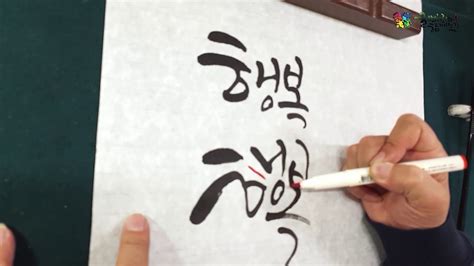 행복
행복